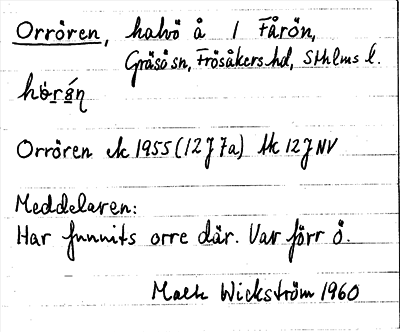 Orrören, halvö å / Fårön,
Gräsö sn, Frösåkers hd, Sthlms l.
Orrören ek 1955 (12J7a) tk 12J NV
Meddelaren:
Har funnits orre där. Var förr ö.
Wickström 1960